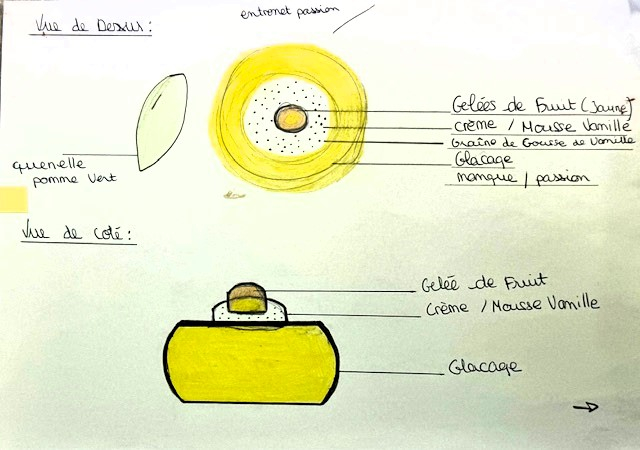 entremet passion
Vue de Dessus:
Gelées de Fruit (Jaune)
crème / Mousse Vanille
Graine de Gousse de Vanille
Glacage
mangue / passion
quenelle
pomme Vert
Vue de coté:
Gelée de Fruit
Crème / Mousse Vanille
Glacage